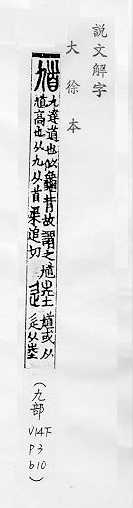 說文解字
大徐本
馗
九達道也似龜背故謂之馗
馗高也从九从首渠追切
逵
馗或从
辵从坴
(九部
V14下
P3
b10)